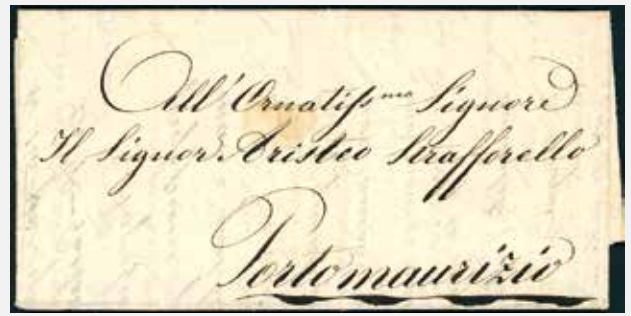 All' Ornatissmo Signore
Il Signor Aristeo Strafforello
Portomaurizio